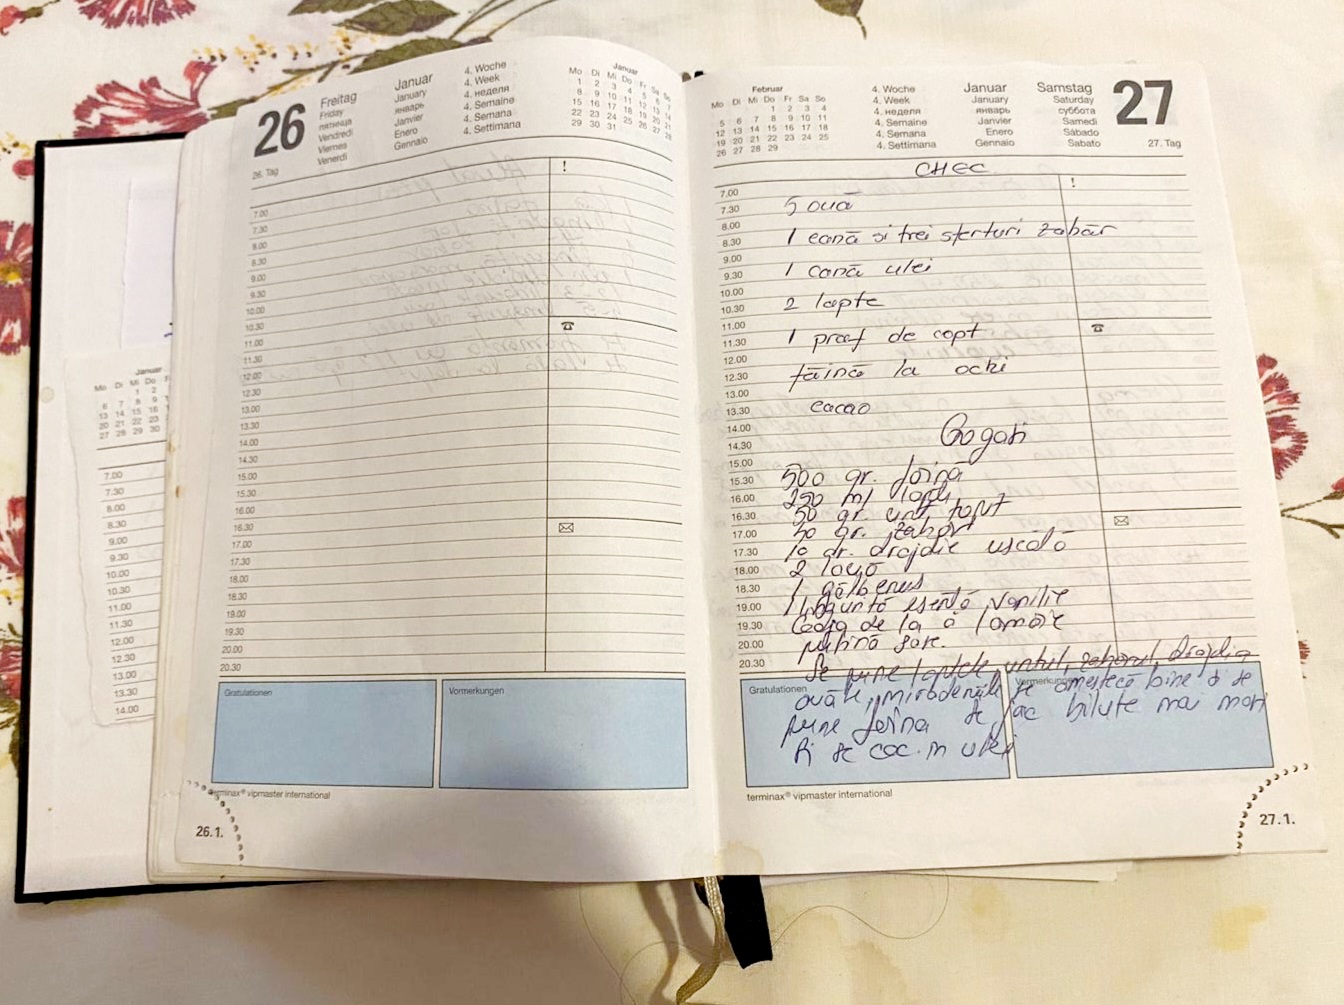 26
Freitag
Friday
пятница
Vendredi
Viernes
Venerdi
Januar
January
январь
Janvier
Enero
Gennaio
4. Woche
4. Week
4. неделя
4. Semaine
4. Semana
4. Settimana
Januar
Mo Di Mi Do Fr Sa So
1 2 3 4 5 6 7
8 9 10 11 12 13 14
15 16 17 18 19 20 21
22 23 24 25 26 27 28
29 30 31
26. Tag
!
7.00
7.30
8.00
8.30
9.00
9.30
10.00
10.30
11.00
11.30
12.00
12.30
13.00
13.30
14.00
14.30
15.00
15.30
16.00
16.30
17.00
17.30
18.00
18.30
19.00
19.30
20.00
20.30
Gratulationen
Vormerkungen
terminax® vipmaster international
26.1.
Januar
Mo Di Mi Do F
1 2
6 7 8 9
13 14 15 16
20 21 22 23
27 28 29 30
7.00
7.30
8.00
8.30
9.00
9.30
10.00
10.30
11.00
11.30
12.00
12.30
13.00
13.30
14.00
Februar
Mo Di Mi Do Fr Sa So
1 2 3 4
5 6 7 8 9 10 11
12 13 14 15 16 17 18
19 20 21 22 23 24 25
26 27 28 29
4. Woche
4. Week
4. неделя
4. Semaine
4. Semana
4. Settimana
Januar
January
январь
Janvier
Enero
Gennaio
Samstag
Saturday
суббота
Samedi
Sábado
Sabato
27
27. Tag
!
CHEC
7.00
7.30
8.00
8.30
9.00
9.30
10.00
10.30
11.00
11.30
12.00
12.30
13.00
13.30
14.00
14.30
15.00
15.30
16.00
16.30
17.00
17.30
18.00
18.30
19.00
19.30
20.00
20.30
5 ouă
1 cană si trei sferturi zahăr
1 cană ulei
2 lapte
1 praf de copt
făină la ochi
cacao
Gogosi
500 gr. făină
250 ml lapte
50 gr. unt topit
50 gr. zahăr
10 gr. drojdie uscată
2 ouă
1 gălbenus
1 linguriță esență vanilie
Coaja de la o lamâie
puțină sare.
Se pune laptele, untul, zahărul, drojdia
ouăle, mirodeniile se amestecă bine si se
pune făina se fac biluțe mai mari
Si se coc in ulei
Gratulationen
Vormerkungen
terminax® vipmaster international
27.1.